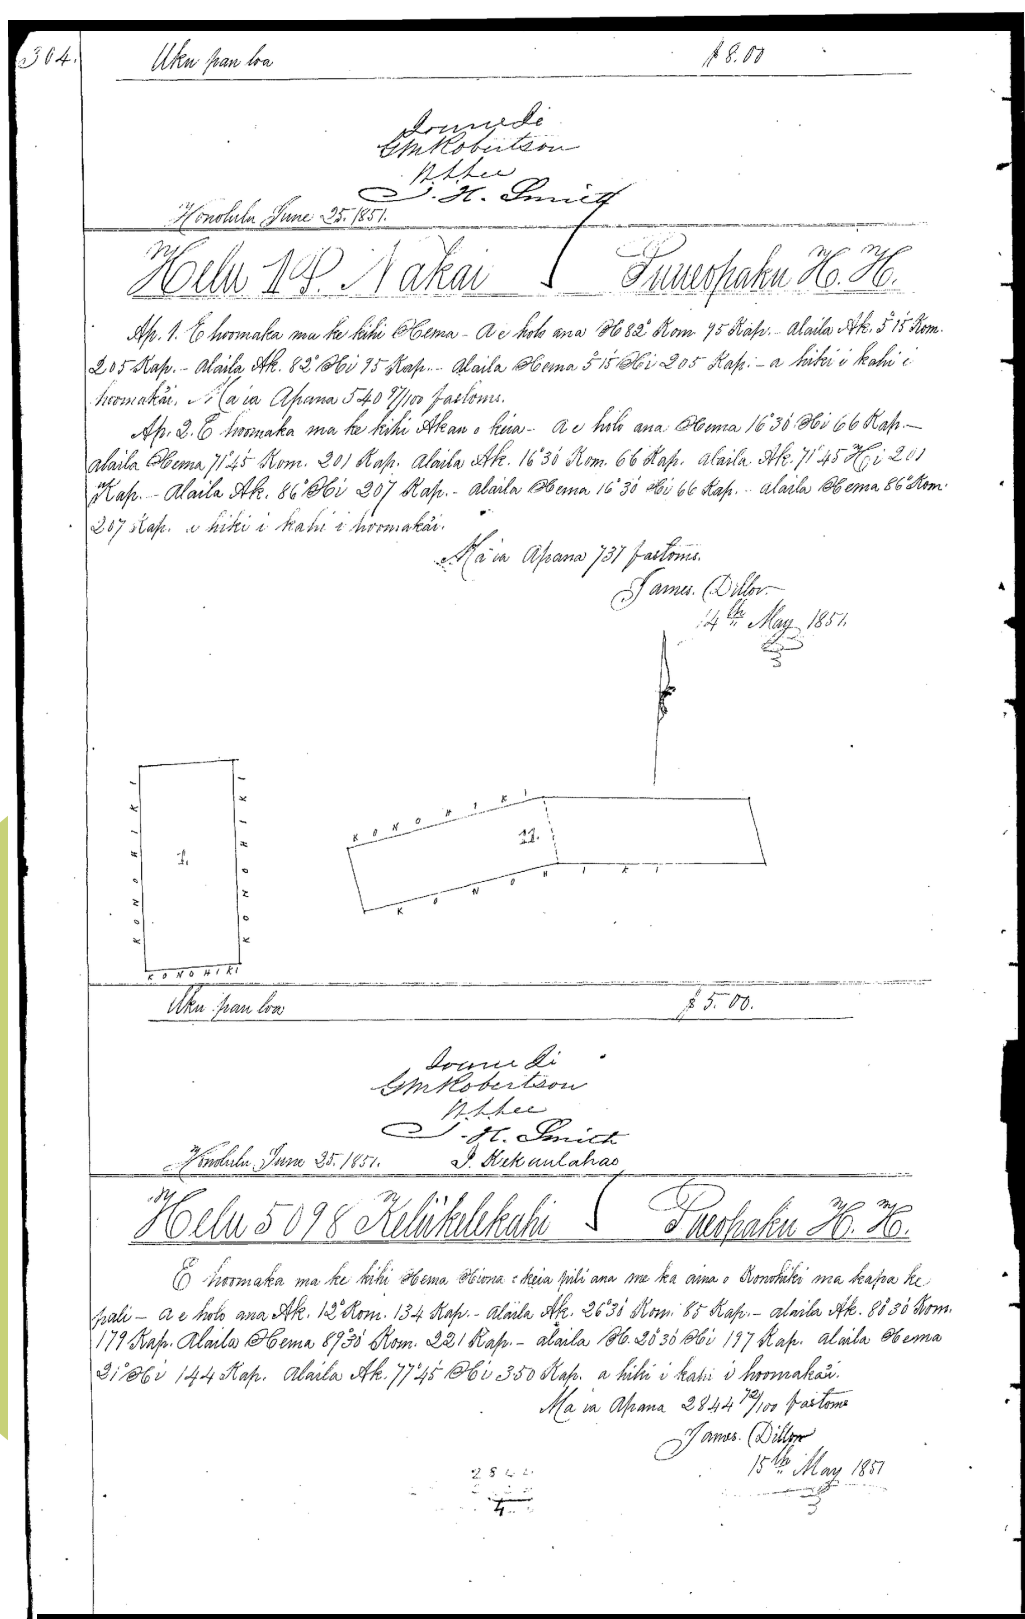 304.
Uku pau loa $8.00
GM Robertson
J. H. Smith
Honolulu June 25. 1851.
Helu Nakai H. H.
Ap. 1. E hoomaka ma ke kihi Hema - A e holo ana H 82° Kom 95 Kap. - alaila Ak. 5°15' Kom.
205 Kap. - alaila Ak. 82° Hi 95 Kap. - alaila Hema 5°15' Hi 205 Kap. - a hiki i kahi i
hoomakai. Ma ia Apana 540 9/100 fastoms.
Ap. 2. E hoomaka ma ke kihi Akau o keia - a e holo ana Hema 16°30' Hi 66 Kap. -
alaila Hema 71°45' Kom. 201 Kap. alaila Ak. 16°30' Kom. 66 Kap. alaila Ak. 71°45' Hi 201
Kap. - alaila Ak. 86° Hi 207 Kap. - alaila Hema 16°30' Hi 66 Kap. - alaila Hema 86° Kom.
207 Kap. a hiki i kahi i hoomakai.
Ma ia Apana 737 fastoms.
James. Dillon
14th May 1851.
KONOHIKI
1.
KONOHIKI
KONOHIKI
KONOHIKI
11.
KONOHIKI
Uku pau loa $5.00.
GM Robertson
J. H. Smith
Honolulu June 25. 1851. J. Kekaulahao
Helu 5098 Keliikelekahi Pueopaku H. H.
E hoomaka ma ke kihi Hema Hiona o keia pili ana me ka aina o Konohiki ma kapa ke
pali - a e holo ana Ak. 12° Kom. 134 Kap. - alaila Ak. 26°30' Kom. 85 Kap. - alaila Ak. 8°30' Kom.
179 Kap. alaila Hema 89°30' Kom. 221 Kap. - alaila H. 20°30' Hi 197 Kap. alaila Hema
21° Hi 144 Kap. alaila Ak. 77°45' Hi 350 Kap. a hiki i kahi i hoomakai.
Ma ia Apana 2844 72/100 fastoms
James. Dillon
15th May 1851
4